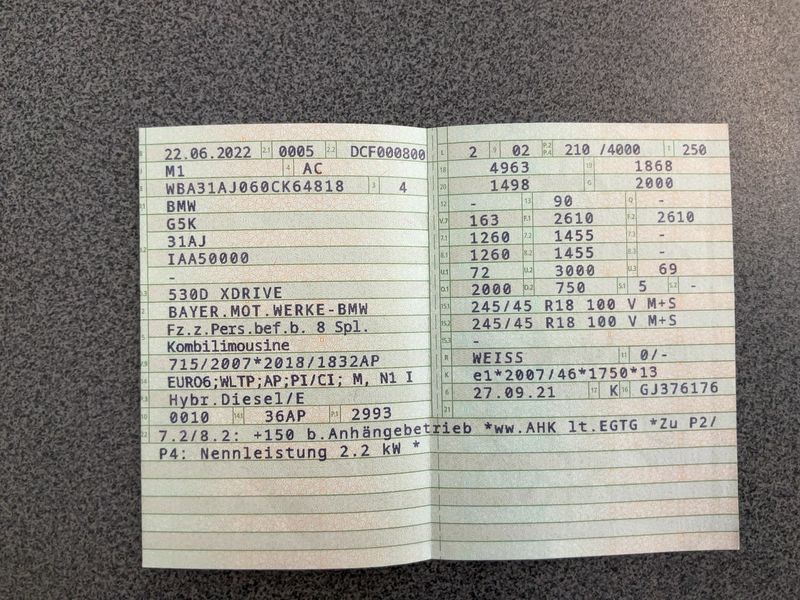 22.06.2022 2.1 0005 2.2 DCF000800
M1 4 AC
WBA31AJ060CK64818 3 4
BMW
G5K
31AJ
IAA50000
-
530D XDRIVE
BAYER.MOT.WERKE-BMW
Fz.z.Pers.bef.b. 8 Spl.
Kombilimousine
715/2007*2018/1832AP
EURO6;WLTP;AP;PI/CI; M, N1 I
Hybr.Diesel/E
10 0010 14.1 36AP P.1 2993
22 7.2/8.2: +150 b.Anhängebetrieb *ww.AHK lt.EGTG *Zu P2/
P4: Nennleistung 2.2 kW *
L 2 9 02 P.2 P.4 210 /4000 T 250
18 4963 19 1868
20 1498 G 2000
12 - 13 90 Q -
V.7 163 F.1 2610 F.2 2610
7.1 1260 7.2 1455 7.3 -
8.1 1260 8.2 1455 8.3 -
U.1 72 U.2 3000 U.3 69
O.1 2000 O.2 750 S.1 5 S.2 -
15.1 245/45 R18 100 V M+S
15.2 245/45 R18 100 V M+S
15.3 -
R WEISS 11 0/-
K e1*2007/46*1750*13
6 27.09.21 17 K 16 GJ376176
21